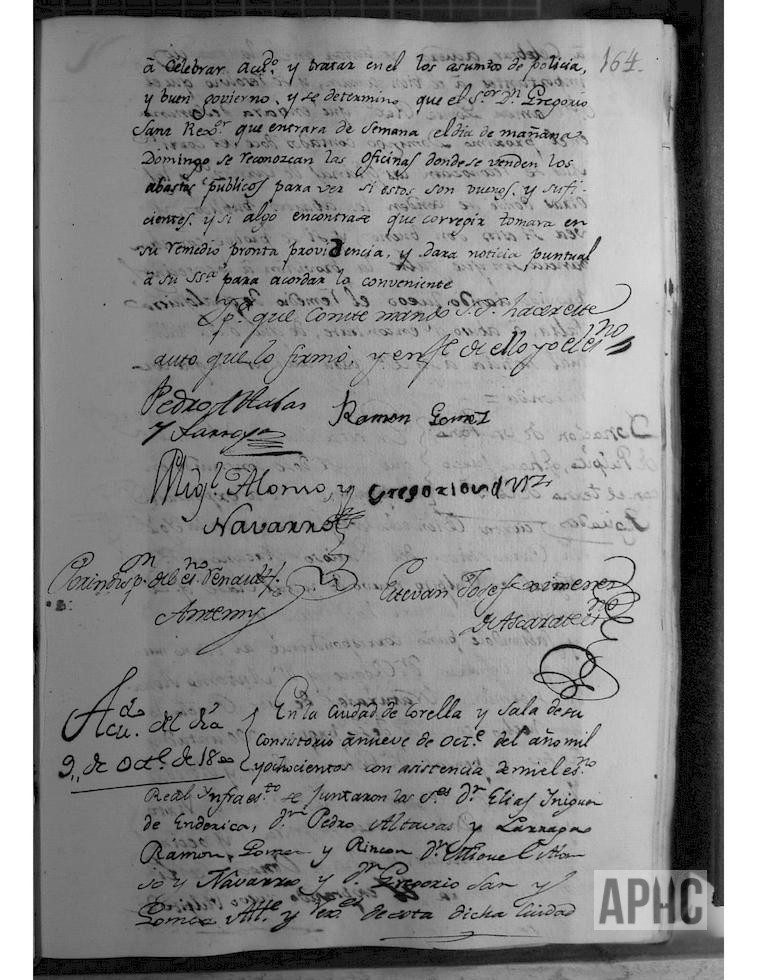 164.
â Celebrar acu.do y tratar en el los asunto de policia,
y buen govierno, y se determino que el S.or Dn Gregorio
Sanz Rex.or que entrara de Semana el dia de mañana
Domingo se reconozcan las oficinas donde se venden los
abastos publicos para ver si estos son buenos. y sufi-
cientes. y si algo encontrase que corregir tomara en
su remedio pronta providencia, y dara noticia puntual
a su SSa para acordar lo conveniente
Y p.a que Conste mando S.S. hacer este
auto que lo firmó, y en fe de ello yo el es.no
Pedro
Ramon Gomez
Mig.l Alonso, y
Navarro
Estevan Josef Ximenez
Acu.do del dia
9,, de Oct.e de 1800
En la Ciudad de Corella y Sala de su
Consistorio â nueve de Oct.e del año mil
y ochocientos con asistencia de mi el es.no
Real Ynfraes.to se juntaron los S.es Dn Elias Iniguez
de Enderica, Dn Pedro Altavas y Larraga
Ramon Gomez y Rincon Dn Miguel Alon
so y Navarro y Dn Gregorio San y
Gomez Alc.e y Rex.es de esta dicha Ciudad
APHC